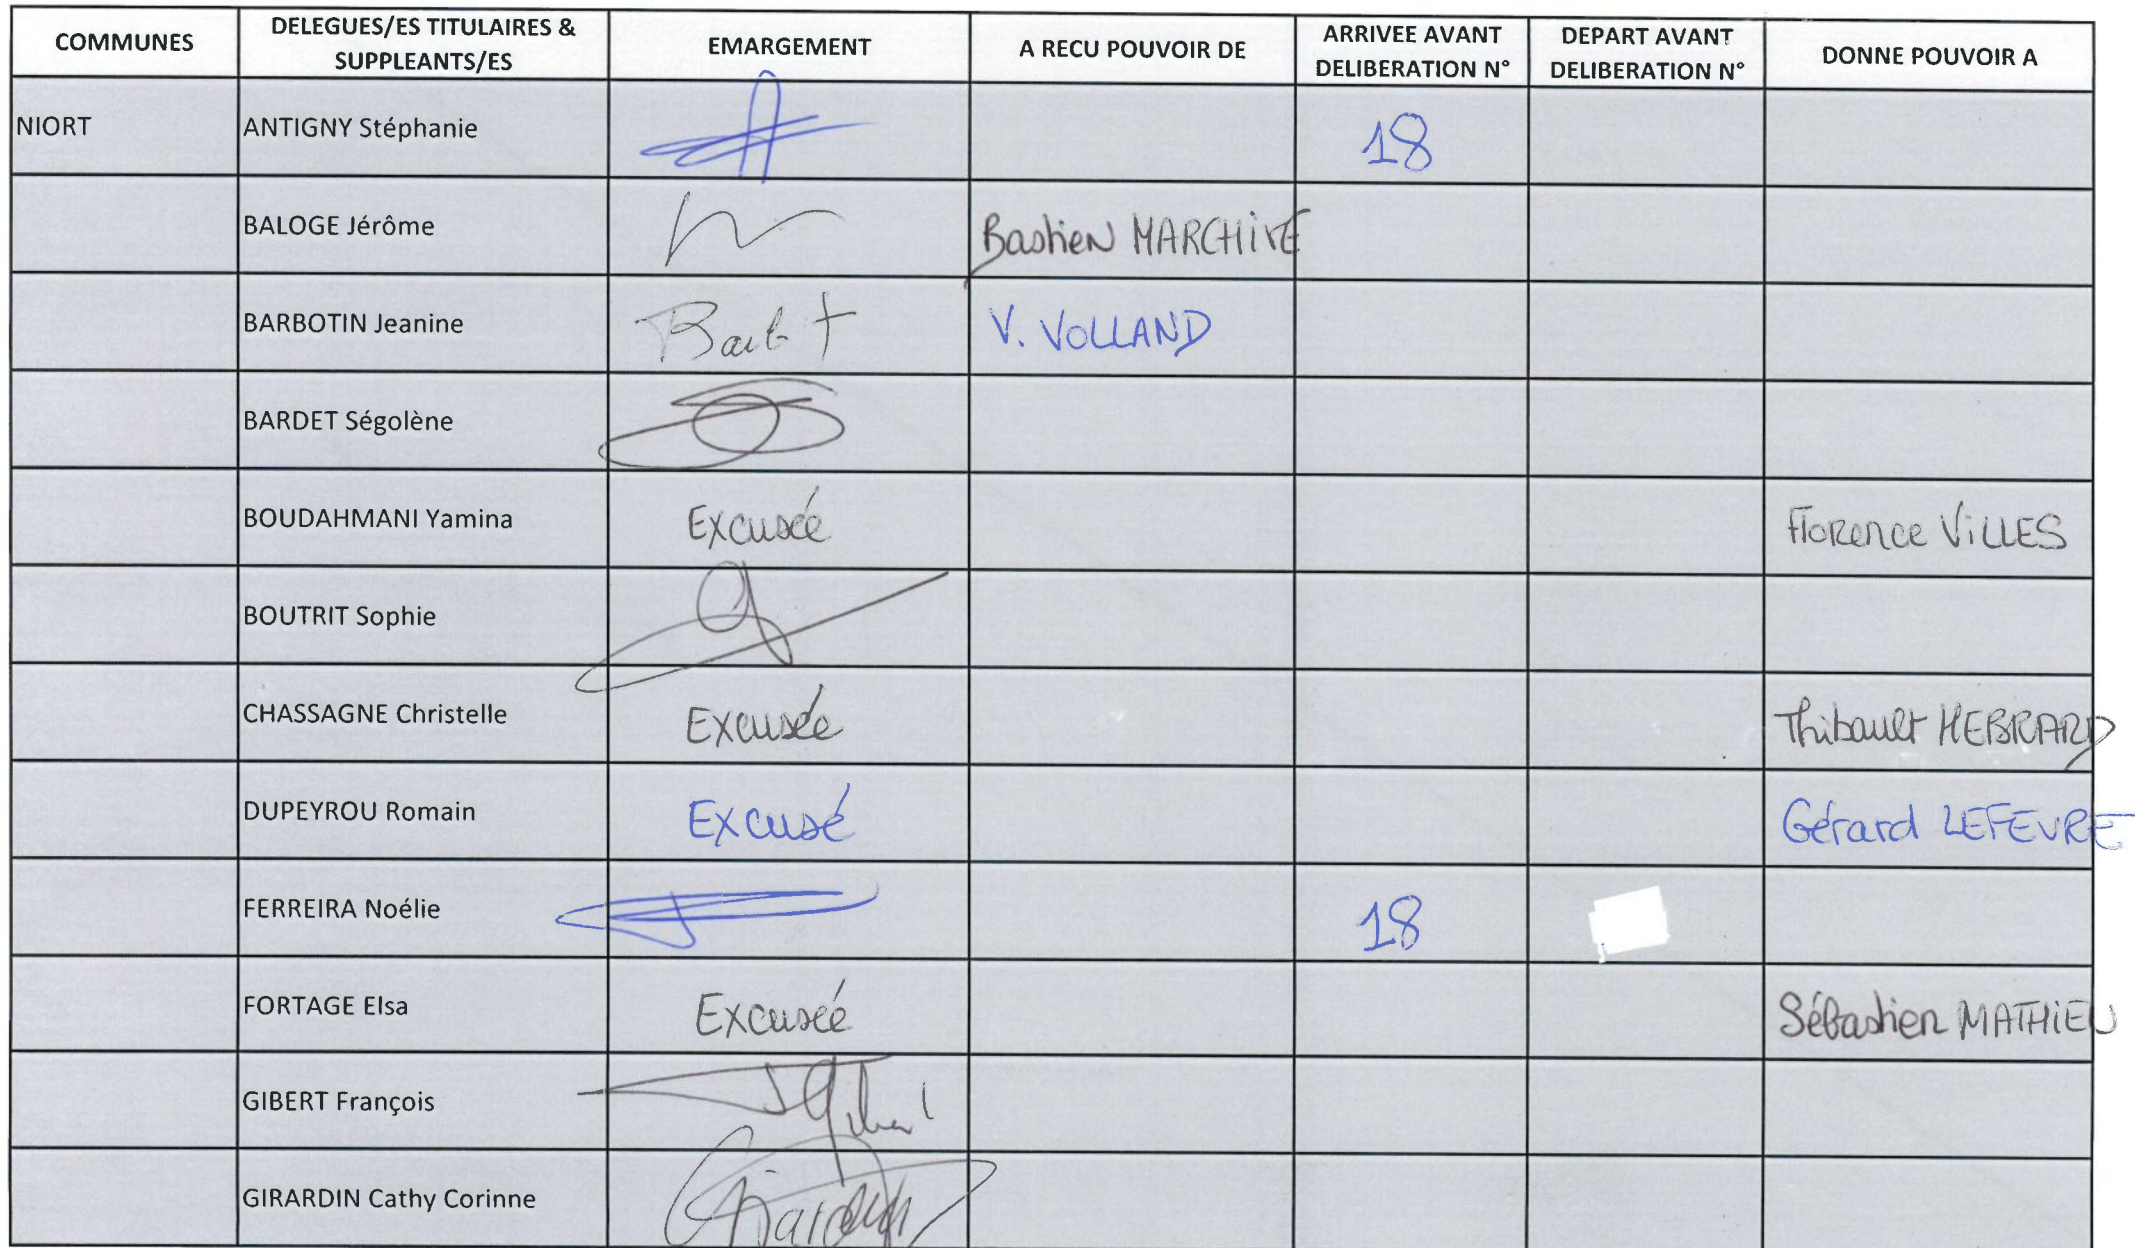 COMMUNES
DELEGUES/ES TITULAIRES &
SUPPLEANTS/ES
EMARGEMENT
A RECU POUVOIR DE
ARRIVEE AVANT
DELIBERATION N°
DEPART AVANT
DELIBERATION N°
DONNE POUVOIR A
NIORT
ANTIGNY Stéphanie
18
BALOGE Jérôme
Bastien MARCHIVE
BARBOTIN Jeanine
V. VOLLAND
BARDET Ségolène
BOUDAHMANI Yamina
Excusée
Florence ViLLES
BOUTRIT Sophie
CHASSAGNE Christelle
Excusée
Thibault HEBRARD
DUPEYROU Romain
Excusé
Gérard LEFEVRE
FERREIRA Noélie
18
FORTAGE Elsa
Excusée
Sébastien MATHIEU
GIBERT François
GIRARDIN Cathy Corinne